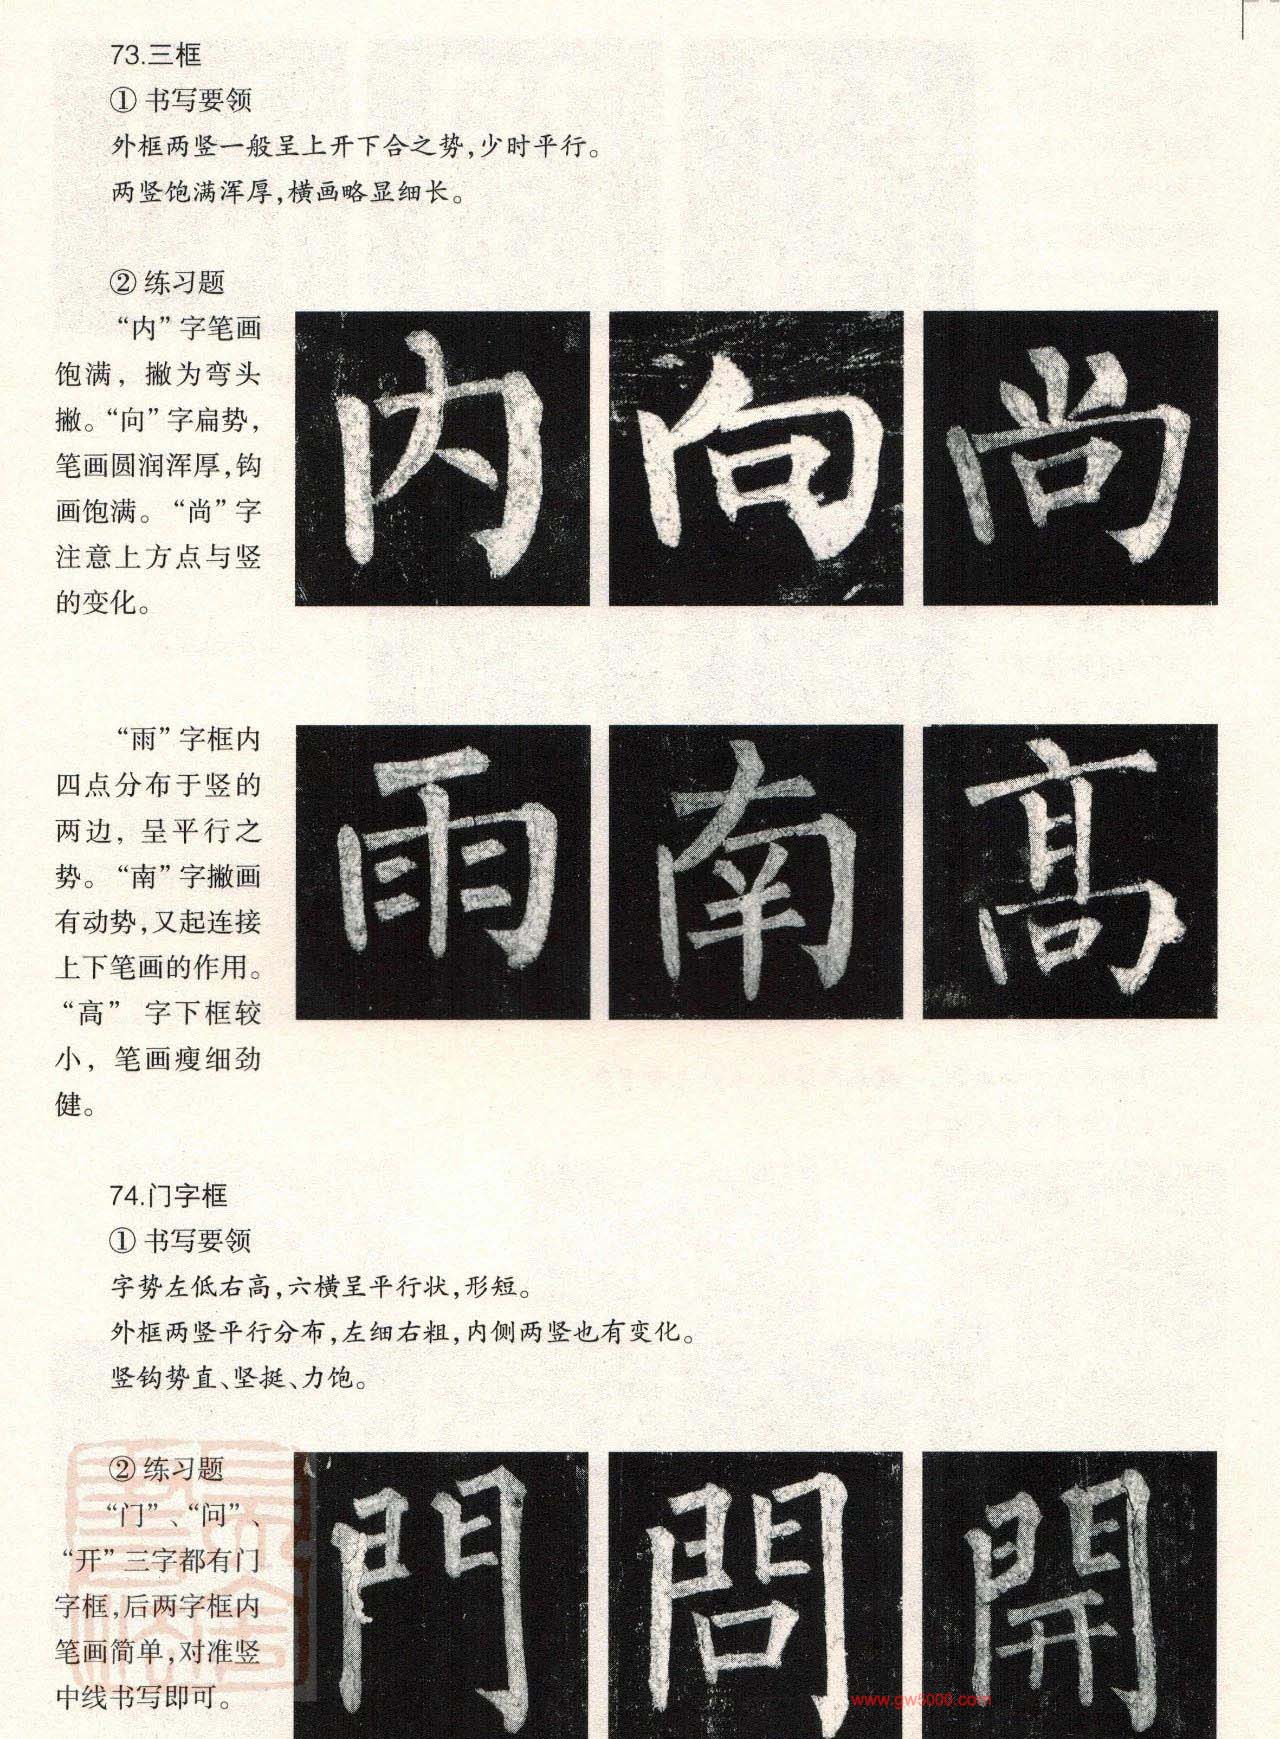 73.三框
① 书写要领
外框两竖一般呈上开下合之势,少时平行。
两竖饱满浑厚,横画略显细长。
② 练习题
“内”字笔画
饱满，撇为弯头
撇。“向”字扁势，
笔画圆润浑厚,钩
画饱满。“尚”字
注意上方点与竖
的变化。
内 向 尚
“雨”字框内
四点分布于竖的
两边，呈平行之
势。“南”字撇画
有动势,又起连接
上下笔画的作用。
“高” 字下框较
小，笔画瘦细劲
健。
雨 南 髙
74.门字框
① 书写要领
字势左低右高,六横呈平行状,形短。
外框两竖平行分布,左细右粗,内侧两竖也有变化。
竖钩势直、坚挺、力饱。
② 练习题
“门”、“问”、
“开”三字都有门
字框,后两字框内
笔画简单,对准竖
中线书写即可。
門 問 開
www.gw5000.com